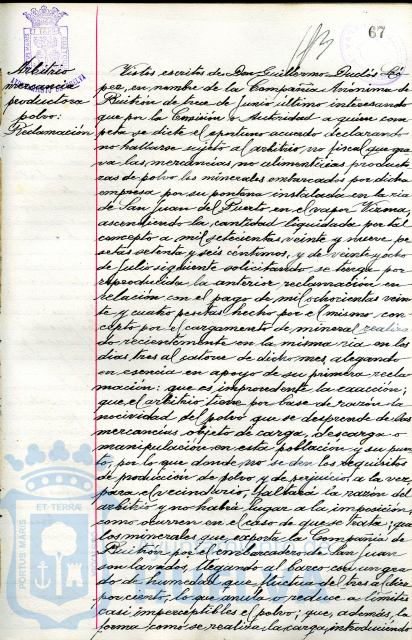 67
Arbitrio
mercancia
productora
polvo:
Reclamación
Vistos escritos de Don Guillermo
pez, en nombre de la Compañía Anónima de
Buitrón de trece de Junio último interesando
que por la Comisión o Autoridad a quien com-
peta se dicte el oportuno acuerdo declarando
no hallarse sujeto al arbitrio no fiscal que gra-
va las mercancias, no alimenticias producto-
ras de polvo los minerales embarcados por dicha
empresa por su pontona instalada en la ria
de San Juan del Puerto, en el vapor
ascendiendo la cantidad liquidada por tal
concepto a mil setecientas veinte y nueve pe-
setas setenta y seis centimos, y de veinte y ocho
de Julio siguiente solicitando se tenga por
reproducida la anterior reclamación en
relación con el pago de mil ochocientas vein-
te y cuatro pesetas hecho por el mismo con-
cepto por el cargamento de mineral realiza-
do recientemente en la misma ria en los
dias tres al catorce de dicho mes, alegando
en esencia en apoyo de su primera recla-
mación: que es improcedente la exacción;
que el arbitrio tiene por base de razón la
nocividad del polvo que se desprende de las
mercancias objeto de carga, descarga o
manipulación en esta población y su puer-
to, por lo que donde no se den los requisitos
de producción de polvo y de perjuicio a la vez,
para el vecindario, faltará la razón del
arbitrio y no habrá lugar a la imposición,
como ocurren en el caso de que se trata; que
los minerales que exporta la Compañía de
Buitrón por el embarcadero de San Juan
son lavados, llegando al barco con un gra-
do de humedad que fluctua de tres a diez
por ciento, lo que anula o reduce a limites
casi imperceptibles el polvo; que, además, la
forma como se realiza la carga, introduciendo
PORTUS MARIS
ET TERRAE